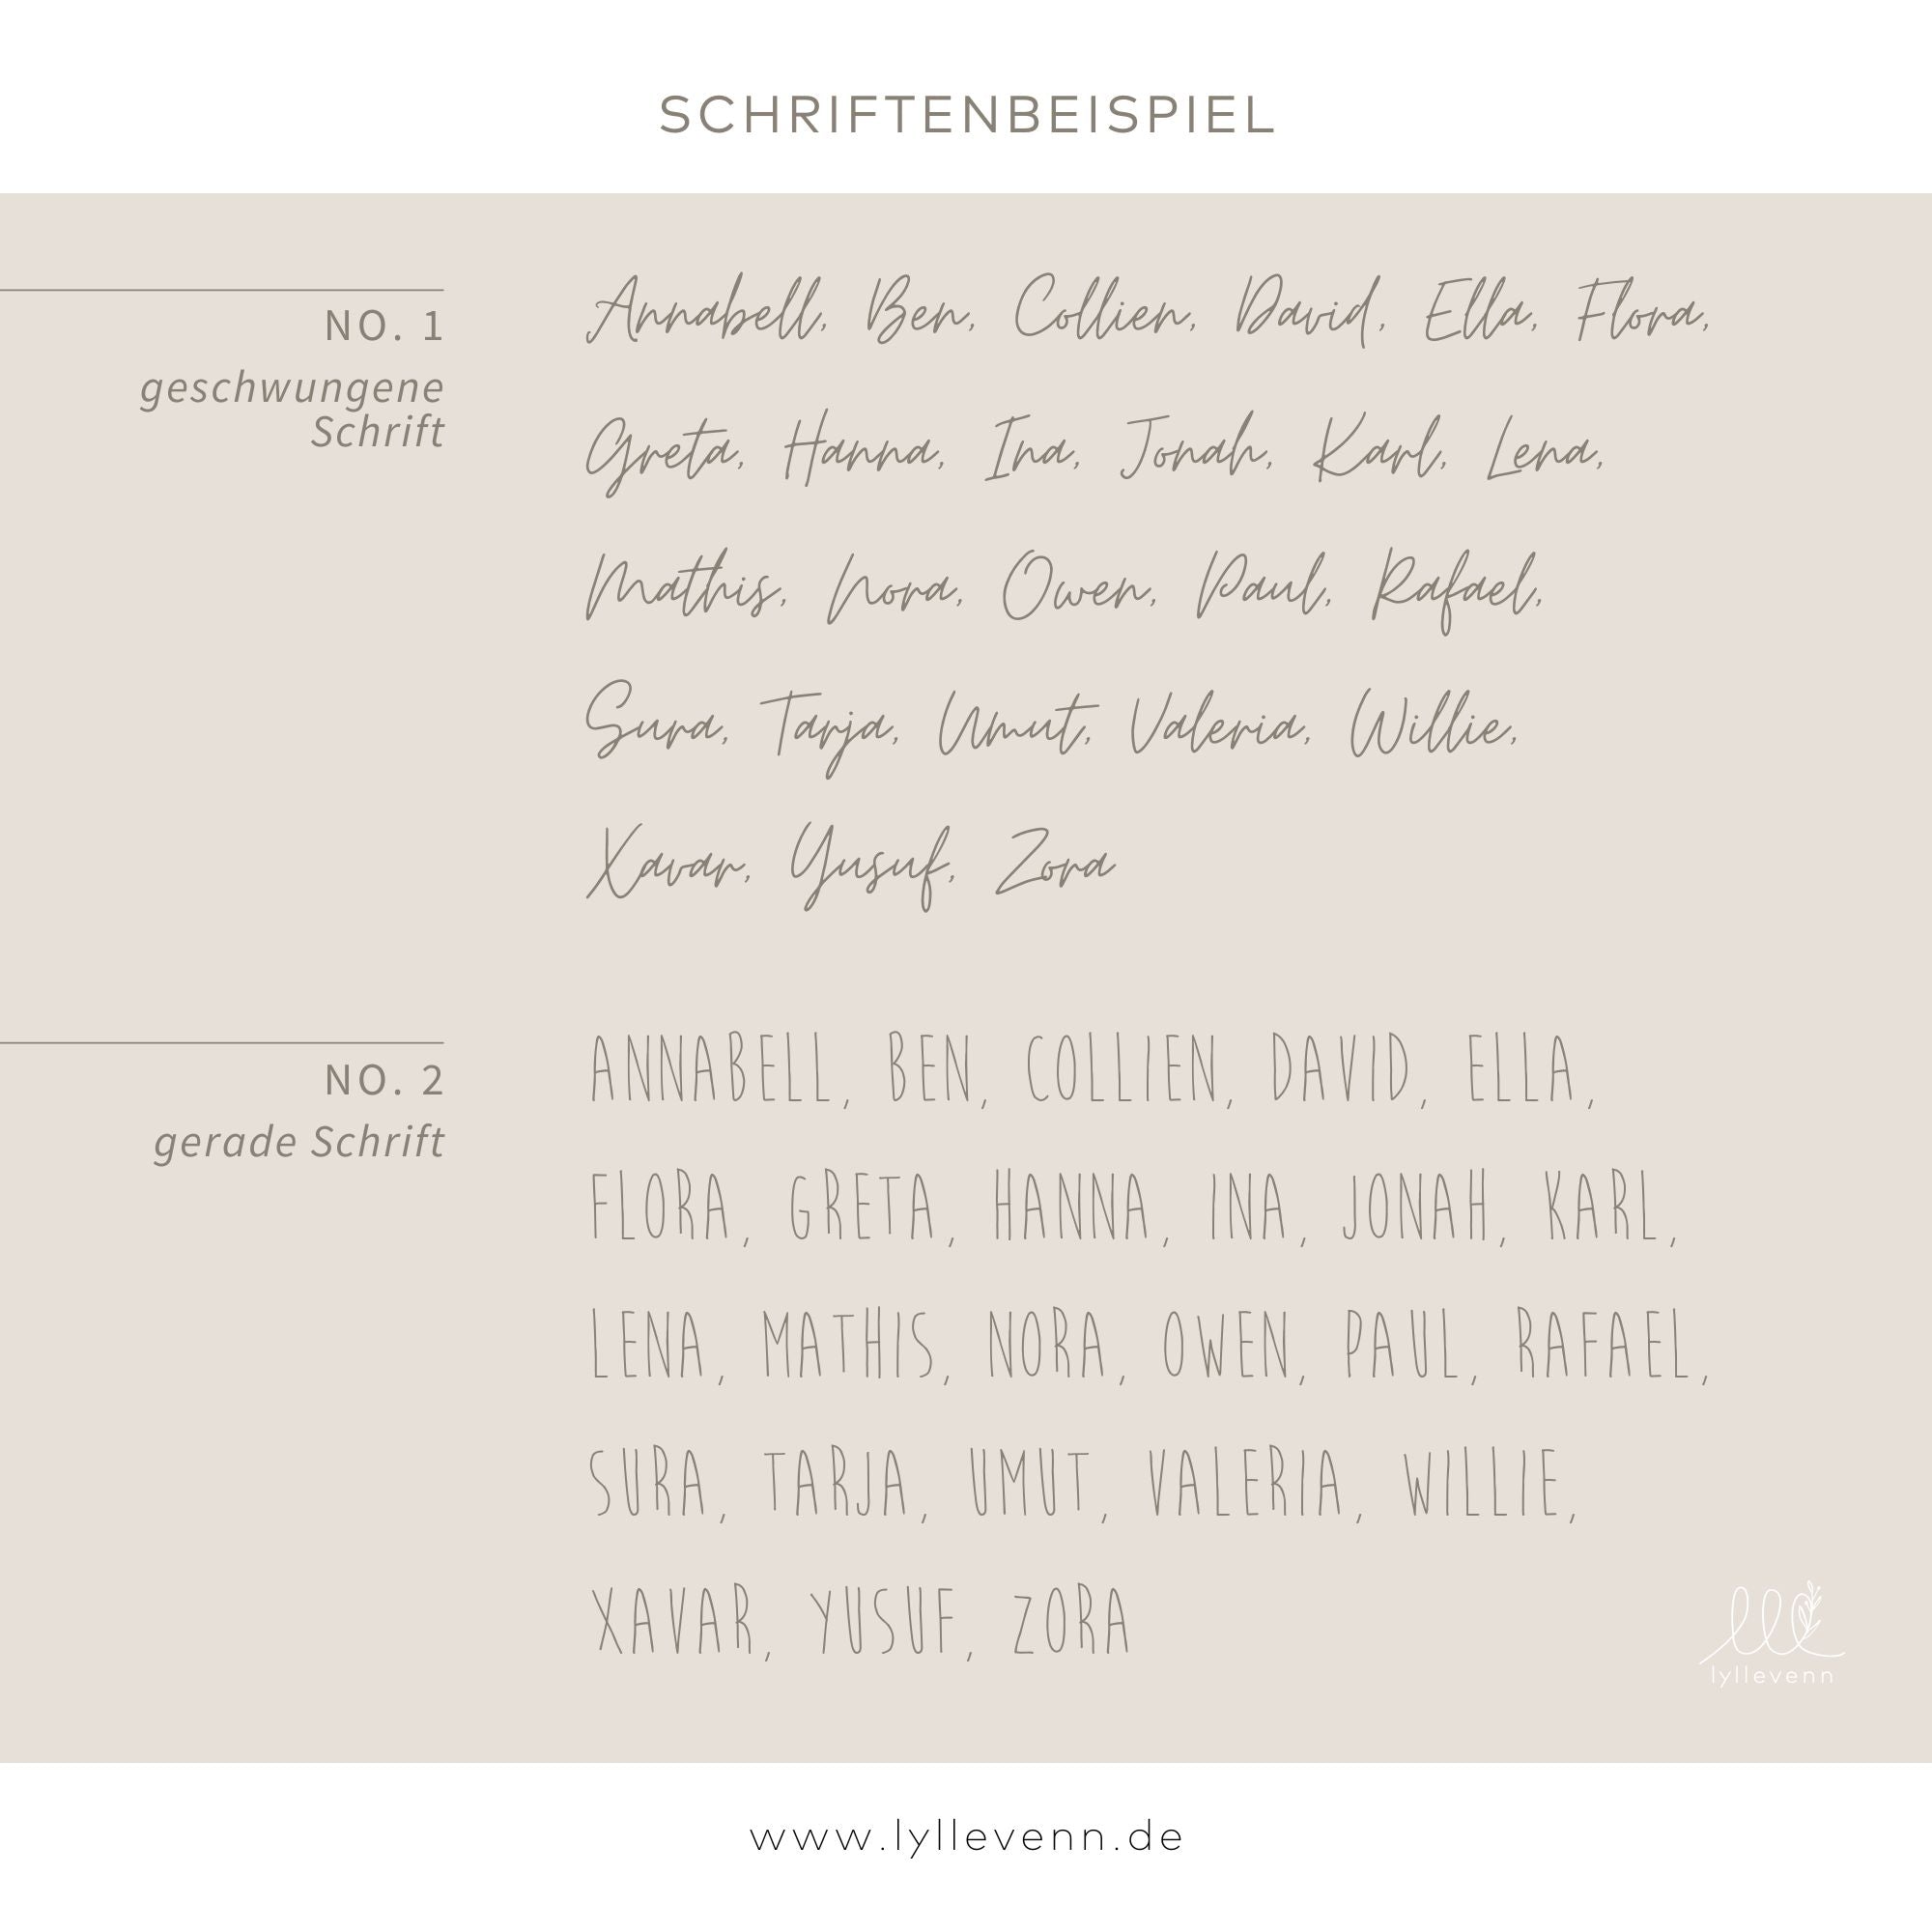 SCHRIFTENBEISPIEL
NO. 1
geschwungene
Schrift
Annabell, Ben, Collien, David, Ella, Flora,
Greta, Hanna, Ina, Jonah, Karl, Lena,
Mathis, Nora, Owen, Paul, Rafael,
Sura, Tarja, Umut, Valeria, Willie,
Xavar, Yusuf, Zora
NO. 2
gerade Schrift
ANNABELL, BEN, COLLIEN, DAVID, ELLA,
FLORA, GRETA, HANNA, INA, JONAH, KARL,
LENA, MATHIS, NORA, OWEN, PAUL, RAFAEL,
SURA, TARJA, UMUT, VALERIA, WILLIE,
XAVAR, YUSUF, ZORA
lyllevenn
www.lyllevenn.de